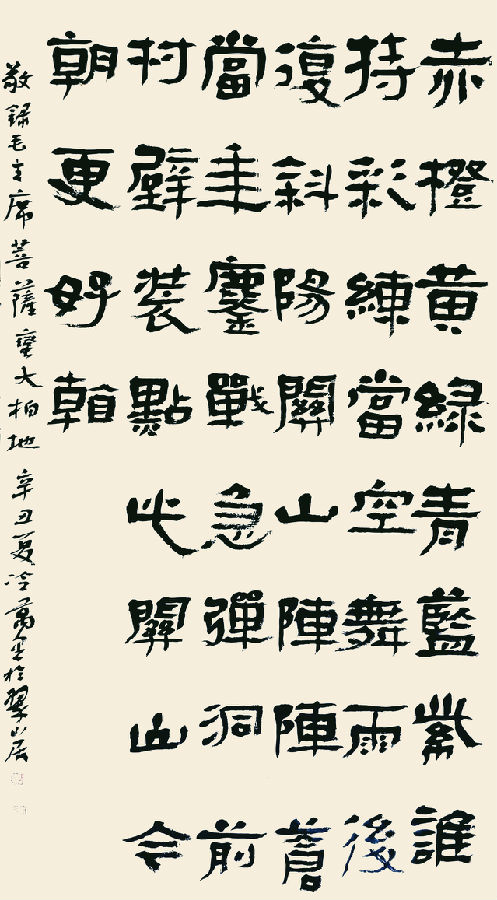 赤橙黄綠青藍紫誰
持彩練當空舞雨後
復斜陽關山陣陣蒼
當年鏖戰急彈洞前
村壁裝點此關山今
朝更好看
敬錄毛主席菩薩蠻大柏地 辛丑夏冷萬於翠山居